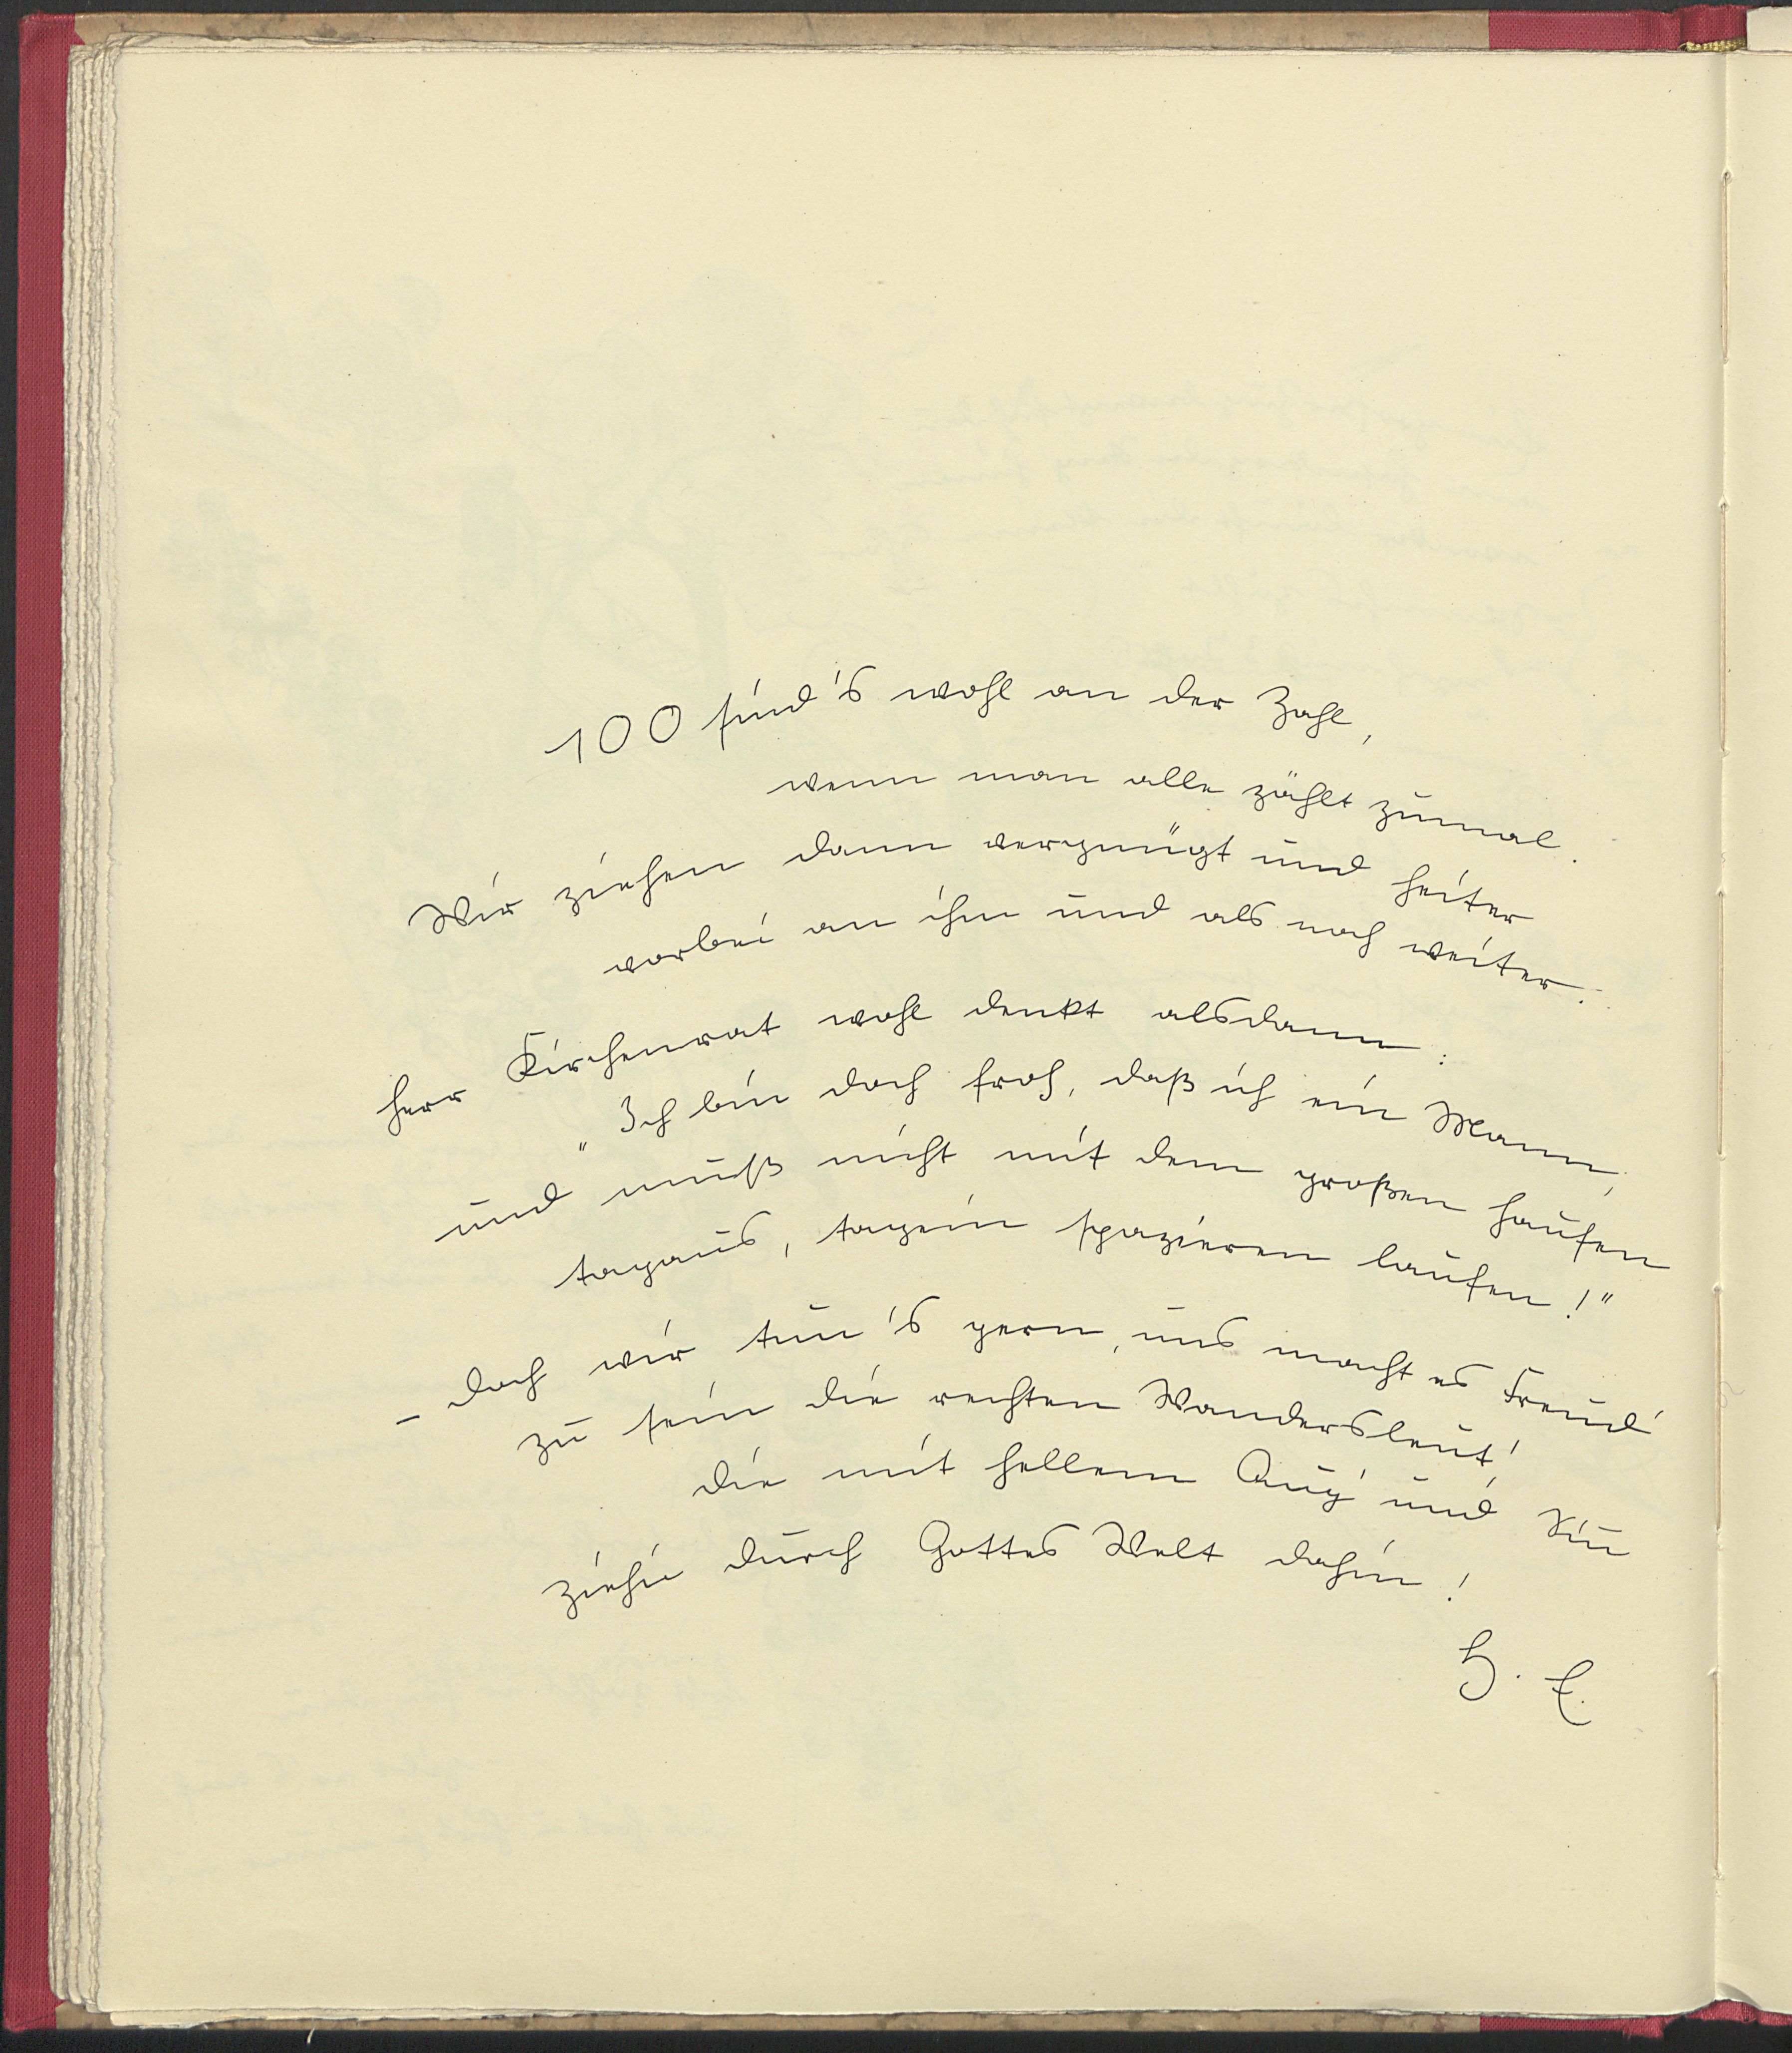 100 sind's wohl an der Zahl,
wenn man alle zählt zumal.
Wir ziehen dann vergnügt und heiter
vorbei an ihm und als noch weiter.
Herr Kirchenrat wohl denkt alsdann:
"Ich bin doch froh, daß ich ein Mann,
und muß nicht mit dem großen Haufen
tagaus, tagein spazieren laufen!"
- Doch wir tun's gern, uns macht es Freud'
zu sein die rechten Wandersleut'
die mit hellem Aug' und Sinn
ziehn durch Gottes Welt dahin!
H. E.